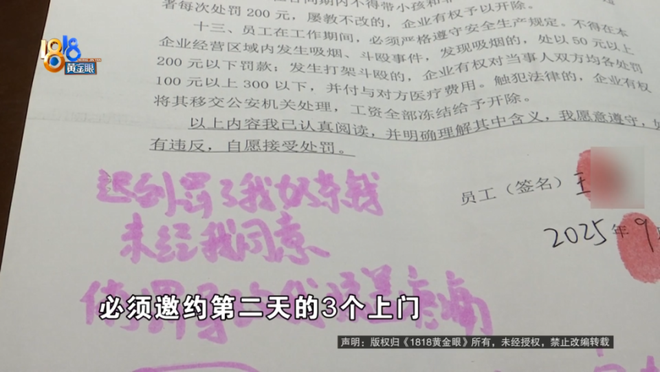 者每次处罚 200 元，屡教不改的，企业有权予以开除。
十三、员工在工作期间，必须严格遵守安全生产规定。不得在本
企业经营区域内发生吸烟、斗殴事件，发现吸烟的，处以 50 元以上
200 元以下罚款；发生打架斗殴的，企业有权对当事人双方均各处罚
100 元以上 300 以下，并付与对方医疗费用。触犯法律的，企业有权
将其移交公安机关处理，工资全部冻结给予开除。
以上内容我已认真阅读，并明确理解其中含义，我愿意遵守，如
有违反，自愿接受处罚。
员工（签名）王
2025年9
迟到罚了我奶茶钱
未经我同意
必须邀约第二天的3个上门
1818
黄金眼
声明：版权归《1818黄金眼》所有，未经授权，禁止改编转载